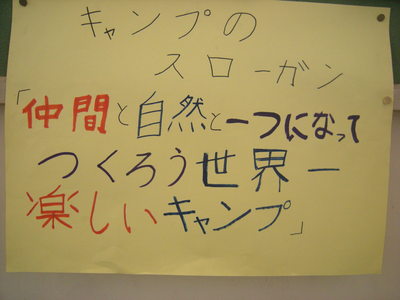 キャンプの
スローガン
「仲間と自然と一つになって
つくろう世界一
楽しいキャンプ」